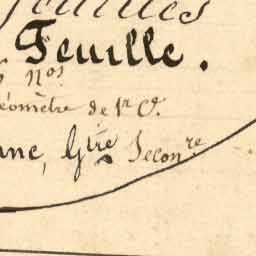 Feuilles
Feuille.
nos
éomètre de 1r O.
nne, Gtre Secon re